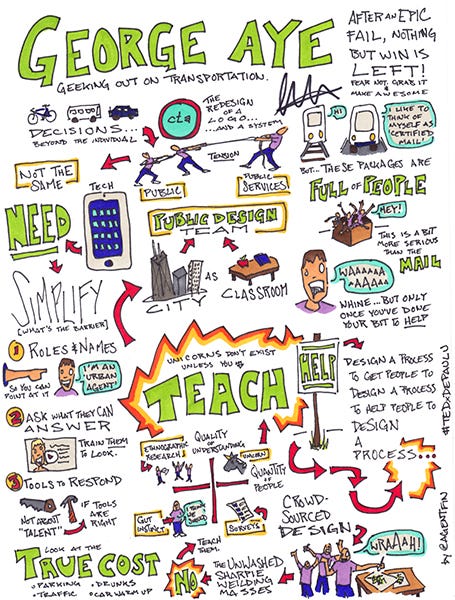 GEORGE AYE
GEEKING OUT ON TRANSPORTATION.
AFTER AN EPIC
FAIL, NOTHING
BUT WIN IS
LEFT!
FEAR NOT. GRAB IT
& MAKE AWESOME
DECISIONS...
BEYOND THE INDIVIDUAL
cta
THE
REDESIGN
OF A
LOGO...
...AND A SYSTEM
TENSION
PUBLIC
PUBLIC
SERVICES!
HI
I LIKE TO
THINK OF
MYSELF AS
CERTIFIED
MAIL!
BUT... THESE PACKAGES ARE
FULL OF PEOPLE
HEY!
THIS IS A BIT
MORE SERIOUS
THAN THE
MAIL
WAAAAAA
AAAAAA
WHINE...BUT ONLY
ONCE YOU'VE DONE
YOUR BIT TO HELP
NOT THE
SAME
TECH
NEED
PUBLIC DESIGN
TEAM
CITY
AS
CLASSROOM
SIMPLIFY
[WHAT'S THE BARRIER]
1 ROLES & NAMES
SO YOU CAN
POINT AT IT
I'M AN
"URBAN
AGENT"
2 ASK WHAT THEY CAN
ANSWER
TRAIN THEM
TO LOOK.
3 TOOLS TO RESPOND
NOT ABOUT
"TALENT"
IF TOOLS
ARE
RIGHT
LOOK AT THE
TRUE COST
• PARKING • DRUNKS
• TRAFFIC • CAR WARM UP
UNICORNS DON'T EXIST
UNLESS YOU
TEACH
HELP
ETHNOGRAPHIC
RESEARCH
QUALITY
OF
UNDERSTANDING
UNICORN
QUANTITY
OF PEOPLE
GUT
INSTINCT
SURVEYS
TEACH
THEM.
NO
THE UNWASHED
SHARPIE
WEILDING
MASSES
CROWD-
SOURCED
DESIGN?
WRAAAH!
DESIGN A PROCESS
TO GET PEOPLE TO
DESIGN A PROCESS
TO HELP PEOPLE TO
DESIGN
A
PROCESS...
#TEDxDEPAULU
by @AGENTFIN